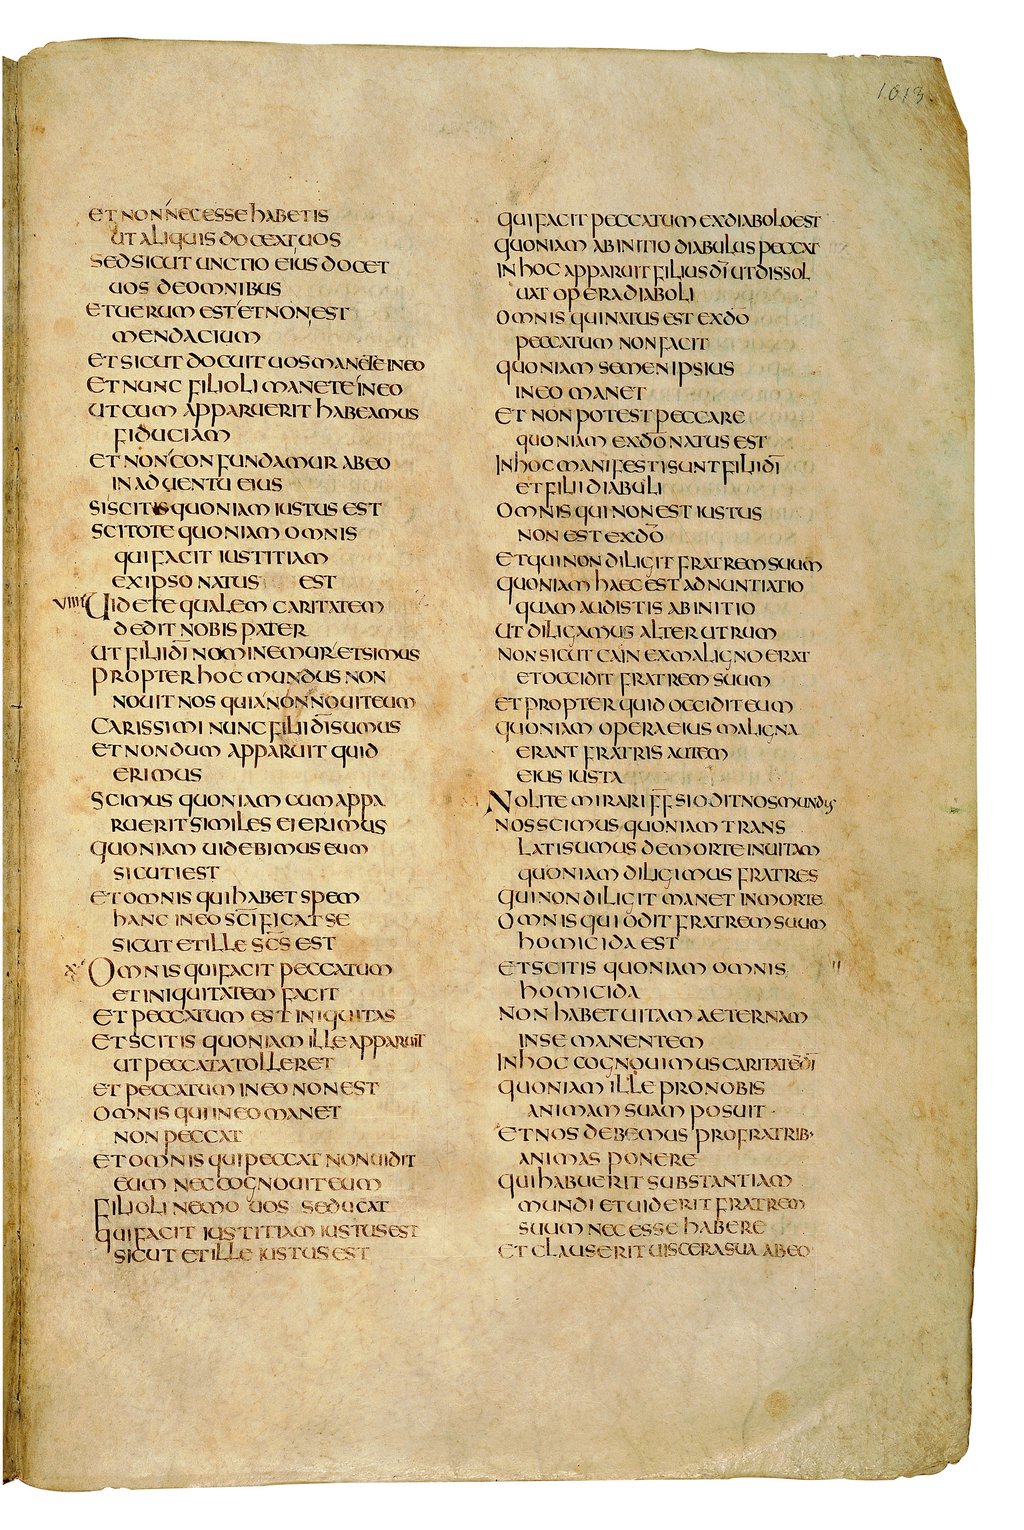 1013.
ET NON NECESSE HABETIS
UT ALIQUIS DOCEAT UOS
SED SICUT UNCTIO EIUS DOCET
UOS DEOMNIBUS
ET UERUM EST ET NON EST
MENDACIUM
ET SICUT DOCUIT UOS MANETE IN EO
ET NUNC FILIOLI MANETE IN EO
UT CUM APPARUERIT HABEAMUS
FIDUCIAM
ET NON CONFUNDAMUR AB EO
IN ADUENTU EIUS
SI SCITIS QUONIAM IUSTUS EST
SCITOTE QUONIAM OMNIS
QUI FACIT IUSTITIAM
EX IPSO NATUS EST
VIIII UIDETE QUALEM CARITATEM
DEDIT NOBIS PATER
UT FILII DĪ NOMINEMUR ET SIMUS
PROPTER HOC MUNDUS NON
NOUIT NOS QUIA NON NOUIT EUM
CARISSIMI NUNC FILII DĪ SUMUS
ET NONDUM APPARUIT QUID
ERIMUS
SCIMUS QUONIAM CUM APPA
RUERIT SIMILES EI ERIMUS
QUONIAM UIDEBIMUS EUM
SICUTI EST
ET OMNIS QUI HABET SPEM
HANC IN EO SC̄IFICAT SE
SICUT ET ILLE SC̄S EST
X OMNIS QUI FACIT PECCATUM
ET INIQUITATEM FACIT
ET PECCATUM EST INIQUITAS
ET SCITIS QUONIAM ILLE APPARUIT
UT PECCATA TOLLERET
ET PECCATUM IN EO NON EST
OMNIS QUI IN EO MANET
NON PECCAT
ET OMNIS QUI PECCAT NON UIDIT
EUM NEC COGNOUIT EUM
FILIOLI NEMO UOS SEDUCAT
QUI FACIT IUSTITIAM IUSTUS EST
SICUT ET ILLE IUSTUS EST
QUI FACIT PECCATUM EX DIABOLO EST
QUONIAM AB INITIO DIABULUS PECCAT
IN HOC APPARUIT FILIUS DĪ UT DISSOL
UAT OPERA DIABOLI
OMNIS QUI NATUS EST EX DŌ
PECCATUM NON FACIT
QUONIAM SEMEN IPSIUS
IN EO MANET
ET NON POTEST PECCARE
QUONIAM EX DŌ NATUS EST
IN HOC MANIFESTI SUNT FILII DĪ
ET FILII DIABULI
OMNIS QUI NON EST IUSTUS
NON EST EX DŌ
ET QUI NON DILIGIT FRATREM SUUM
QUONIAM HAEC EST ADNUNTIATIO
QUAM AUDISTIS AB INITIO
UT DILIGAMUS ALTERUTRUM
NON SICUT CAIN EX MALIGNO ERAT
ET OCCIDIT FRATREM SUUM
ET PROPTER QUID OCCIDIT EUM
QUONIAM OPERA EIUS MALIGNA
ERANT FRATRIS AUTEM
EIUS IUSTA
NOLITE MIRARI F̄F̄ SI ODIT NOS MUNDUS
NOS SCIMUS QUONIAM TRANS
LATI SUMUS DE MORTE IN UITAM
QUONIAM DILIGIMUS FRATRES
QUI NON DILIGIT MANET IN MORTE
OMNIS QUI ODIT FRATREM SUUM
HOMICIDA EST
ET SCITIS QUONIAM OMNIS
HOMICIDA
NON HABET UITAM AETERNAM
IN SE MANENTEM
IN HOC COGNOUIMUS CARITATĒ DĪ
QUONIAM ILLE PRO NOBIS
ANIMAM SUAM POSUIT
ET NOS DEBEMUS PRO FRATRIB·
ANIMAS PONERE
QUI HABUERIT SUBSTANTIAM
MUNDI ET UIDERIT FRATREM
SUUM NECESSE HABERE
ET CLAUSERIT UISCERA SUA AB EO